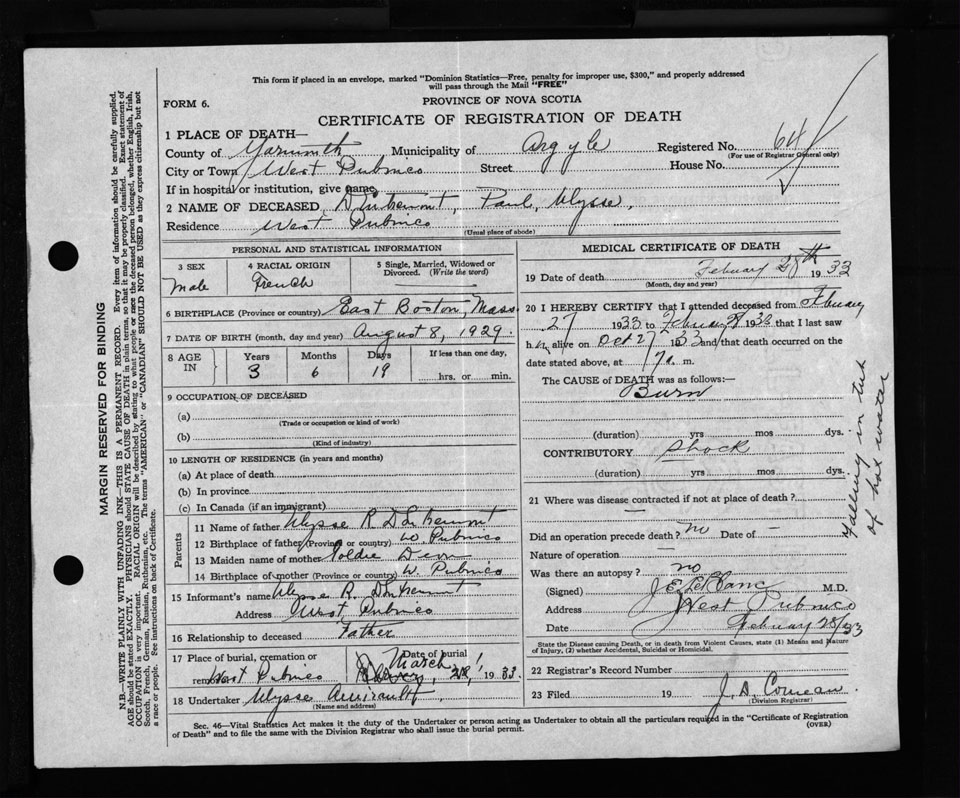 This form if placed in an envelope, marked "Dominion Statistics—Free, penalty for improper use, $300," and properly addressed
will pass through the Mail "FREE"
FORM 6.
PROVINCE OF NOVA SCOTIA
CERTIFICATE OF REGISTRATION OF DEATH
1 PLACE OF DEATH—
County of Yarmouth Municipality of Argyle Registered No. 64
(For use of Registrar General only)
City or Town West Pubnico Street House No.
If in hospital or institution, give name
2 NAME OF DECEASED D'Entremont, Paul, Ulysse,
Residence West Pubnico
(Usual place of abode)
PERSONAL AND STATISTICAL INFORMATION
3 SEX
Male
4 RACIAL ORIGIN
French
5 Single, Married, Widowed or
Divorced. (Write the word)
6 BIRTHPLACE (Province or country) East Boston, Mass.
7 DATE OF BIRTH (month, day and year) August 8, 1929.
8 AGE
IN
Years
3
Months
6
Days
19
If less than one day,
hrs. or min.
9 OCCUPATION OF DECEASED
(a)
(Trade or occupation or kind of work)
(b)
(Kind of industry)
10 LENGTH OF RESIDENCE (in years and months)
(a) At place of death
(b) In province
(c) In Canada (if an immigrant)
Parents
11 Name of father Ulysse R. D'Entremont
12 Birthplace of father (Province or country) W. Pubnico
13 Maiden name of mother Goldie
14 Birthplace of mother (Province or country) W. Pubnico
15 Informant's name Ulysse R. D'Entremont
Address West Pubnico
16 Relationship to deceased Father
17 Place of burial, cremation or Date of burial
removal West Pubnico March 1, 1933.
18 Undertaker Ulysse Amirault
(Name and address)
MEDICAL CERTIFICATE OF DEATH
19 Date of death February 28th 1933
(Month, day and year)
20 I HEREBY CERTIFY that I attended deceased from February
27 1933 to February 1933 that I last saw
h alive on 27 1933 and that death occurred on the
date stated above, at 7 a. m.
The CAUSE of DEATH was as follows:—
Burn
(duration) yrs mos dys.
CONTRIBUTORY Shock
(duration) yrs mos dys.
21 Where was disease contracted if not at place of death?
Did an operation precede death? no Date of
Nature of operation
Was there an autopsy? no
(Signed) J.E. LeBlanc M.D.
Address West Pubnico
Date February 28/33
State the Disease causing Death, or in death from Violent Causes, state (1) Means and Nature of
Injury, (2) whether Accidental, Suicidal or Homicidal.
22 Registrar's Record Number
23 Filed 19 J. A. Comeau
(Division Registrar)
Sec. 46—Vital Statistics Act makes it the duty of the Undertaker or person acting as Undertaker to obtain all the particulars required in the "Certificate of Registration
of Death" and to file the same with the Division Registrar who shall issue the burial permit.
(OVER)
Falling in tub
of hot water
MARGIN RESERVED FOR BINDING
N.B.—WRITE PLAINLY WITH UNFADING INK—THIS IS A PERMANENT RECORD. Every item of information should be carefully supplied.
AGE should be stated EXACTLY. PHYSICIANS should STATE CAUSE OF DEATH in plain terms, so that it may be properly classified. Exact statement of
OCCUPATION is very important. RACIAL ORIGIN will be described by stating to what people or race the deceased person belonged, whether English, Irish,
Scotch, French, German, Russian, Ruthenian, etc. The terms "AMERICAN" or "CANADIAN" SHOULD NOT BE USED as they express citizenship but not
a race or people. See instructions on back of Certificate.